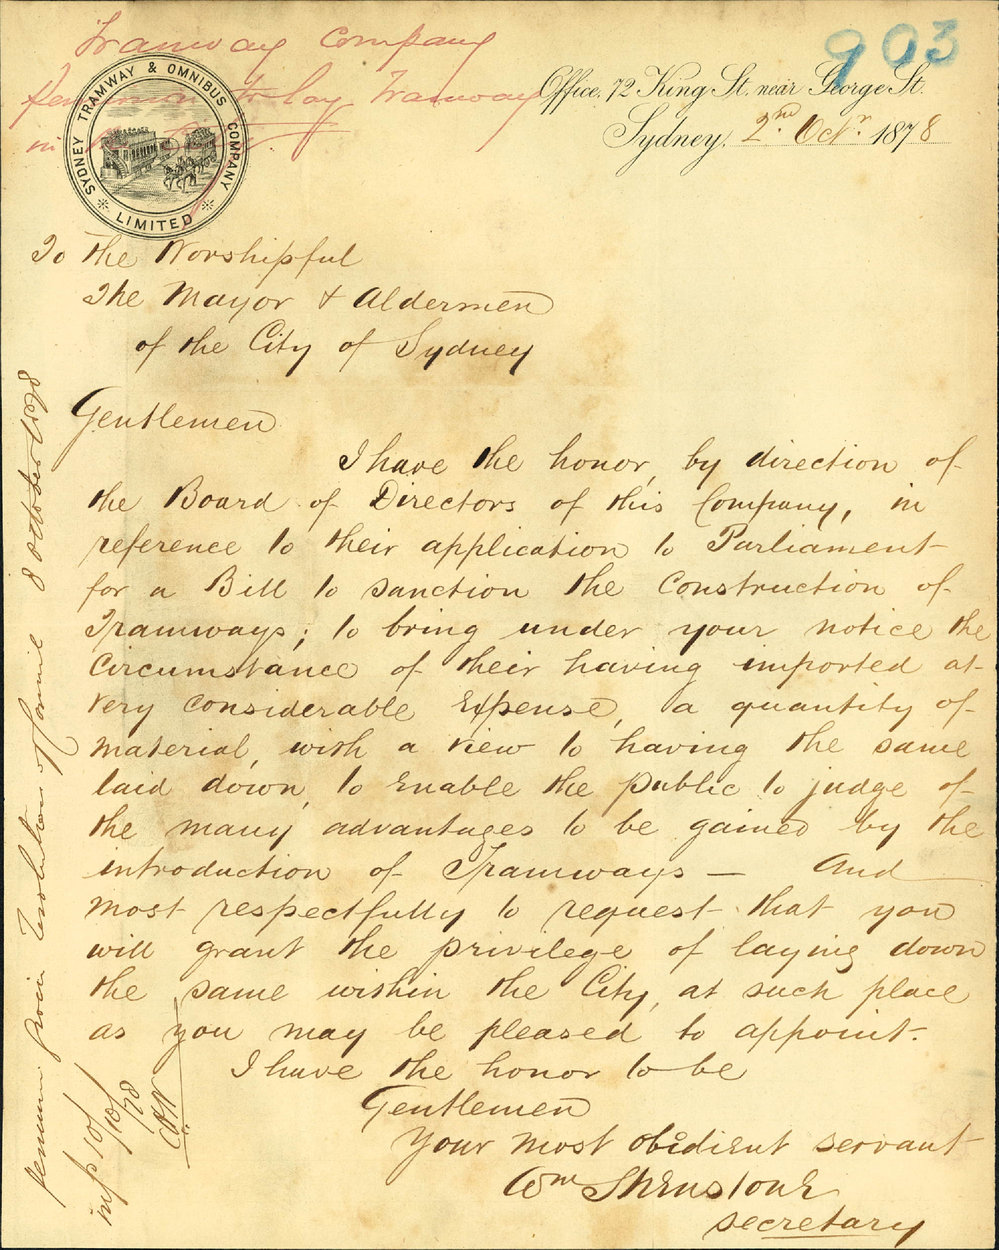 903
Tramway Company
permission to lay Tramway
in
SYDNEY TRAMWAY & OMNIBUS COMPANY
LIMITED
Office, 72 King St. near George St.
Sydney, 2nd Octr. 1878
To The Worshipful
The Mayor & Aldermen
of the City of Sydney
Gentlemen
I have the honor, by direction of
the Board of Directors of this Company, in
reference to their application to Parliament
for a Bill to sanction the construction of
Tramways; to bring under your notice the
Circumstance of their having imported at
very considerable Expense, a quantity of
material, with a view to having the same
laid down, to enable the public to judge of
the many advantages to be gained by the
introduction of Tramways — And
most respectfully to request that you
will grant the privilege of laying down
the same within the City, at such place
as you may be pleased to appoint.
I have the honor to be
Gentlemen
Your most obedient servant
Wm Shenstone
secretary
Resolution of Council 8 October 1878
10/10/78